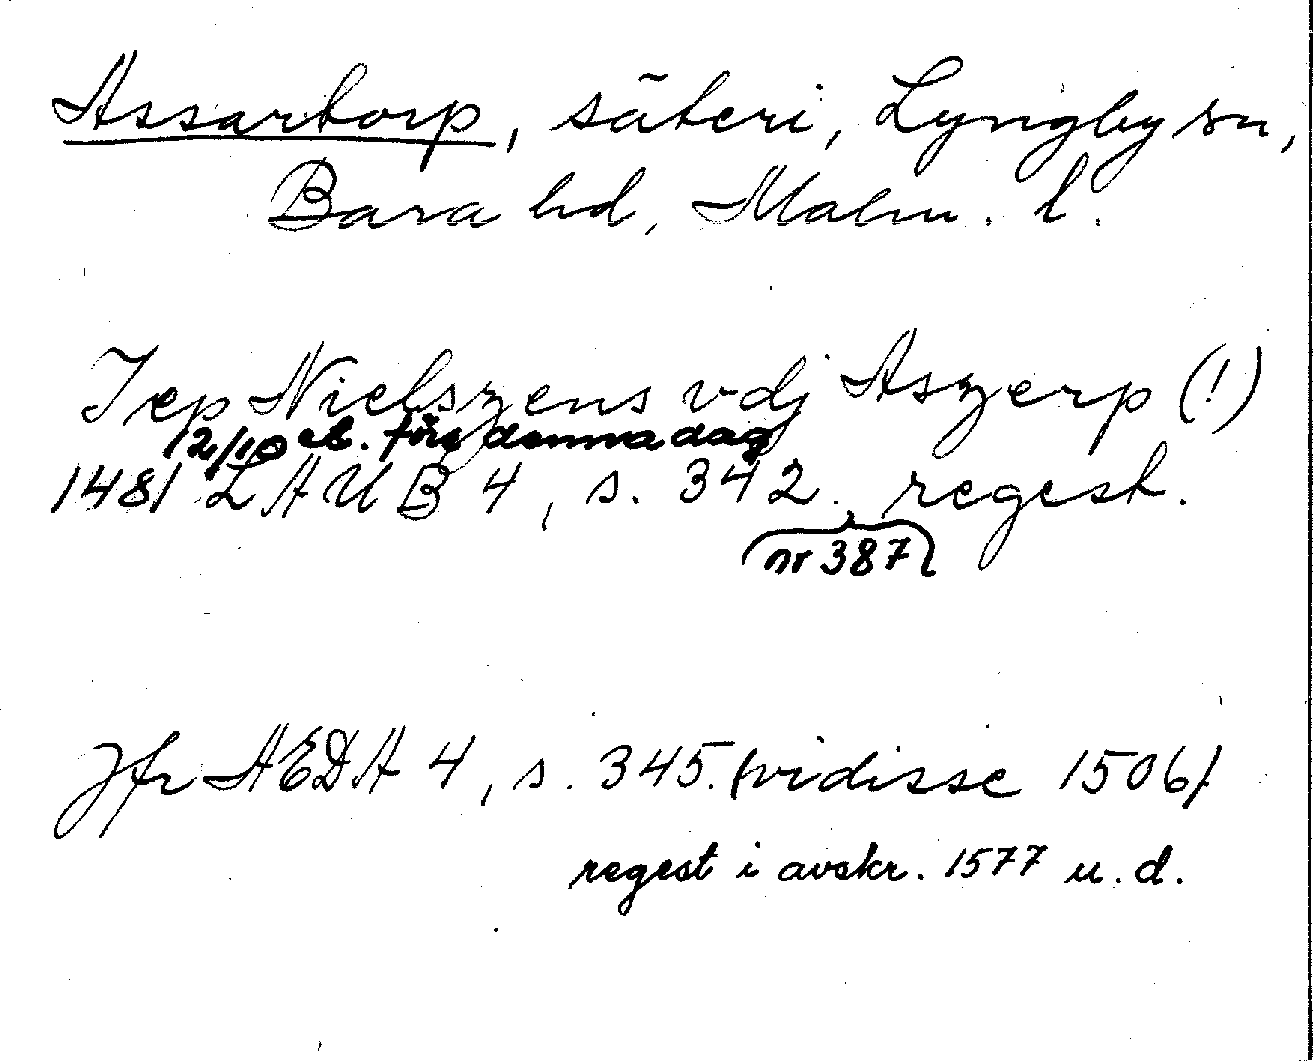 Assartorp, säteri, Lyngby sn,
Bara hd, Malm. l.
Jep Nielszens vdj Aszerp (!)
12/10 el. före denna dag
1481 LAUB 4, s. 342, regest.
nr 387
Jfr AEDA 4, s. 345. (vidisse 1506)
regest i avskr. 1577 u. d.